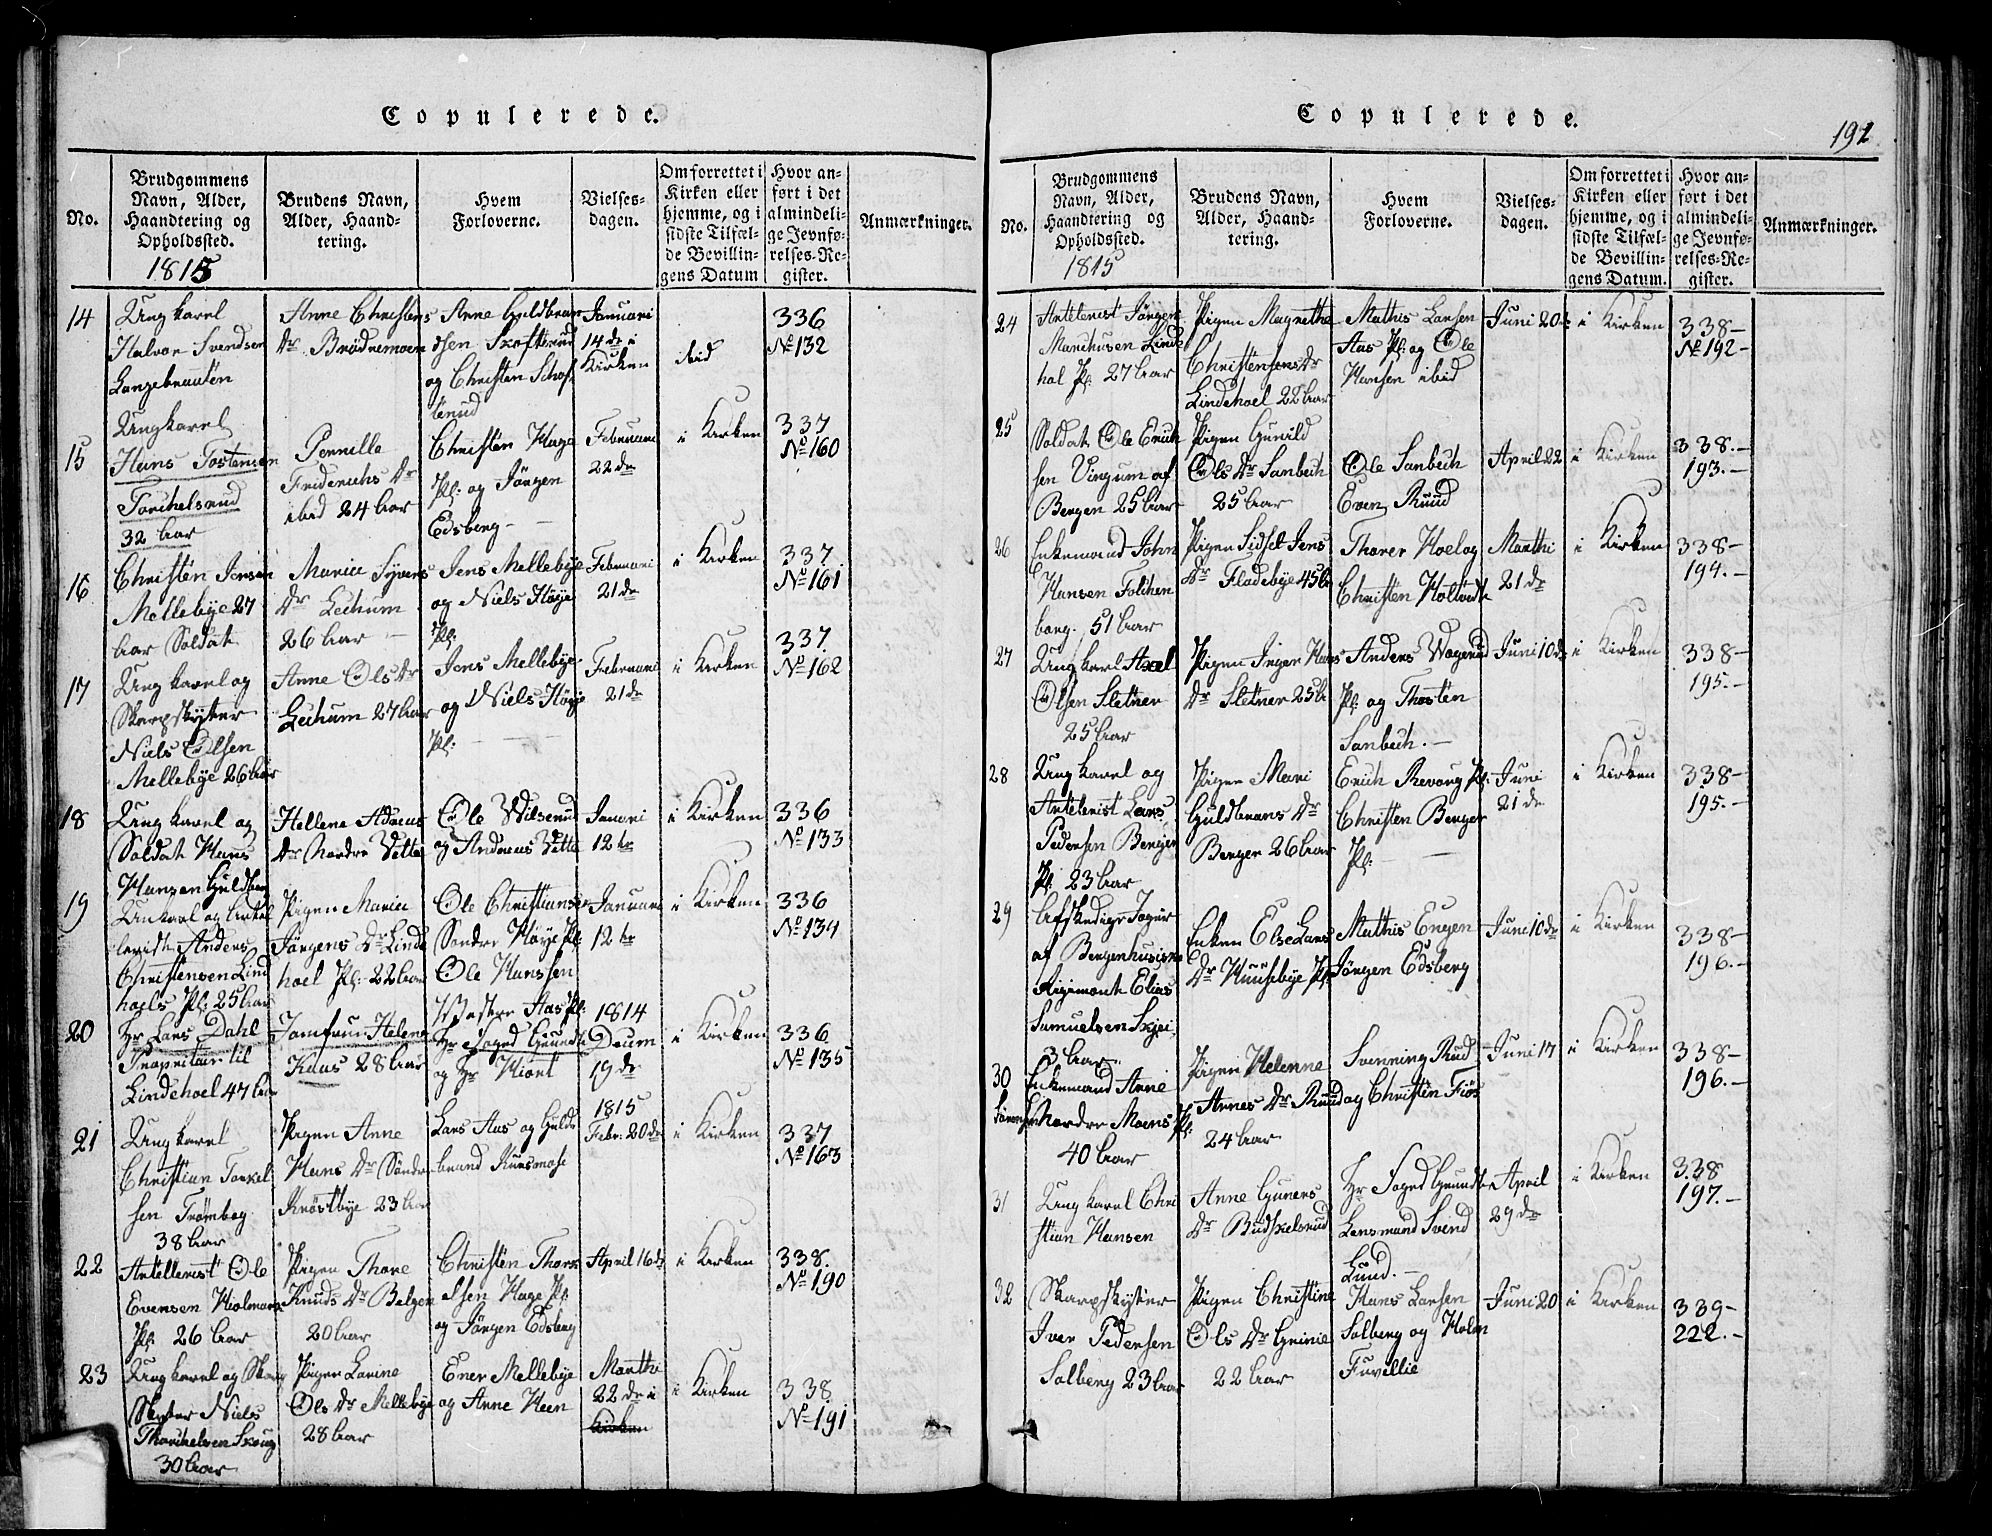 Copulerede.
No.
Brudgommens Navn, Alder, Haandtering og Opholdssted.
1815
Brudens Navn, Alder, Haandtering.
Hvem Forloverne.
Vielsesdagen.
Om forrettet i Kirken eller hjemme, og i sidste Tilfælde Bevillingens Datum
Hvor anført i det almindelige Jevnførelses-Register.
Anmærkninger.
14
Ungkarl
Halvor Svendsen
Langebraaten
Anne Christens
Dr Brødremoen
Anne Guldbran
dsen Skofterud
og Christen Schof
terud
Januari
14de i
Kirken
ibid
336
No 132
15
Ungkarl
Hans Tostensen
Torchelsrud
32 Aar
Pernille
Friderichs Dr
ibid 24 Aar
Christen Hage
Pl: og Jørgen
Edsberg
Februari
22de
i Kirken
337
No 160
16
Christen Jensen
Mellebye 27
Aar Soldat
Marie Syvers
Dr Leihum
26 Aar
Jens Mellebye
og Niels Høye
Pl:
Februari
21de
i Kirken
337
No 161
17
Ungkarl og
Skarpskytter
Niels Olsen
Mellebye 26 Aar
Anne Ols Dr
Leihum 27 Aar
Jens Mellebye
og Niels Høye
Pl:
Februari
21de
i Kirken
337
No 162
18
Ungkarl og
Soldat Hans
Hansen Guldberg
Hellene Adneus
Dr Nordre Vette
Ole Wilserud
og Andreas Vette
Januari
12te
i Kirken
336
No 133
19
Unkarl og Artel
lerist Anders
Christensen Lind
hoels Pl: 25 Aar
Pigen Marie
Jørgens Dr Linde
hoel Pl: 22 Aar
Ole Christiansen
Søndre Høye Pl:
Ole Hanssen
Westre Aas Pl:
Januari
12te
i Kirken
336
No 134
20
Hr Lars Dahl
Propritair til
Lindehoel 47 Aar
Jomfrue Helene
Kaas 28 Aar
Hr Foged Grundt
og Hr Hiort
1814
Decem
19de
i Kirken
336
No 135
21
Ungkarl
Christian Torkel
sen Trømbog
38 Aar
Pigen Anne
Hans Dr Søndre
Krøstbye 23 Aar
Lars Aas og Guld
brand Kursmose
1815
Febr: 20de
i Kirken
337
No 163
22
Artellerist Ole
Evensen Hiolmara
Pl: 26 Aar
Pigen Thore
Knuds Dr Belgen
20 Aar
Christen Thor
elsen Hage Pl:
og Jørgen Edsberg
April 16de
i Kirken
338.
No 190
23
Ungkarl og Skarp
Skytter Niels
Thorchelsen Skoug
30 Aar
Pigen Larine
Ols Dr Mellebye
28 Aar
Ener Mellebye
og Arne Heen
Marthi
22de i
Kirken
i Kirken
338
No 191
Copulerede.
191
No.
Brudgommens Navn, Alder, Haandtering og Opholdssted.
1815
Brudens Navn, Alder, Haandtering.
Hvem Forloverne.
Vielsesdagen.
Om forrettet i Kirken eller hjemme, og i sidste Tilfælde Bevillingens Datum.
Hvor anført i det almindelige Jevnførelses-Register.
Anmærkninger.
24
Artelerist Jørgen
Marchusen Linde
hol Pl: 27 Aar
Pigen Magrethe
Christensens Dr
Lindehoel 22 Aar
Mathis Larsen
Aas Pl: og Ole
Hansen ibid
Juni 20de
i Kirken
338-
No 192-
25
Soldat Ole Erich
sen Vingum af
Bergen 25 Aar
Pigen Gunild
Ols Dr Sanbech
25 Aar
Ole Sanbech
Even Ruud
April 22
i Kirken
338.-
193.-
26
Enkemand John
Hansen Folchen
borg. 51 Aar
Pigen Sidsel Jens
Dr Fladebye 45 Aar
Thorer Hoel og
Christen Holtvedt
Marthi
21de
i Kirken
338-
194.-
27
Ungkarl Axel
Olsen Sletner
25 Aar
Pigen Inger Hans
Dr Sletner 25 Aar
Anders Wogerud
Pl: og Thosten
Sanbech.-
Juni 10de
i Kirken
338-
195.-
28
Ungkarl og
Artelerist Lars
Pedersen Berger
Pl: 23 Aar
Pigen Mari
Guldbrans Dr
Berger 26 Aar
Erich Revoug Pl:
Christen Berger
Pl:
Juni
21de
i Kirken
338-
195.-
29
Afskediget Jæger
af Bergenhusiske
Rigimente Elias
Samuelsen Skjei
Enken Else Lars
Dr Huusebye Pl:
Mathis Engen
Jørgen Edsberg
Juni 10de
i Kirken
338-
196.-
30
Enkemand Arne
Nordre Moens Pl:
40 Aar
Pigen Helenne
Arnes Dr Ruud
24 Aar
Svenning Rud
og Christen Fiøs
Juni 17
i Kirken
338-
196-
31
Ungkarl Chri
stian Hansen
Anne Guners
Dr Budskelsrud
Hr Foged Grundt
Lensmand Svend
Lund.-
April
29de
i Kirken
338
197.-
32
Skarpskytter
Iver Pedersen
Solberg 23 Aar
Pigen Christine
Ols Dr Grinie
22 Aar
Hans Larsen
Solberg og Holm
Fuvellie
Juni 20
i Kirken
339-
222.-